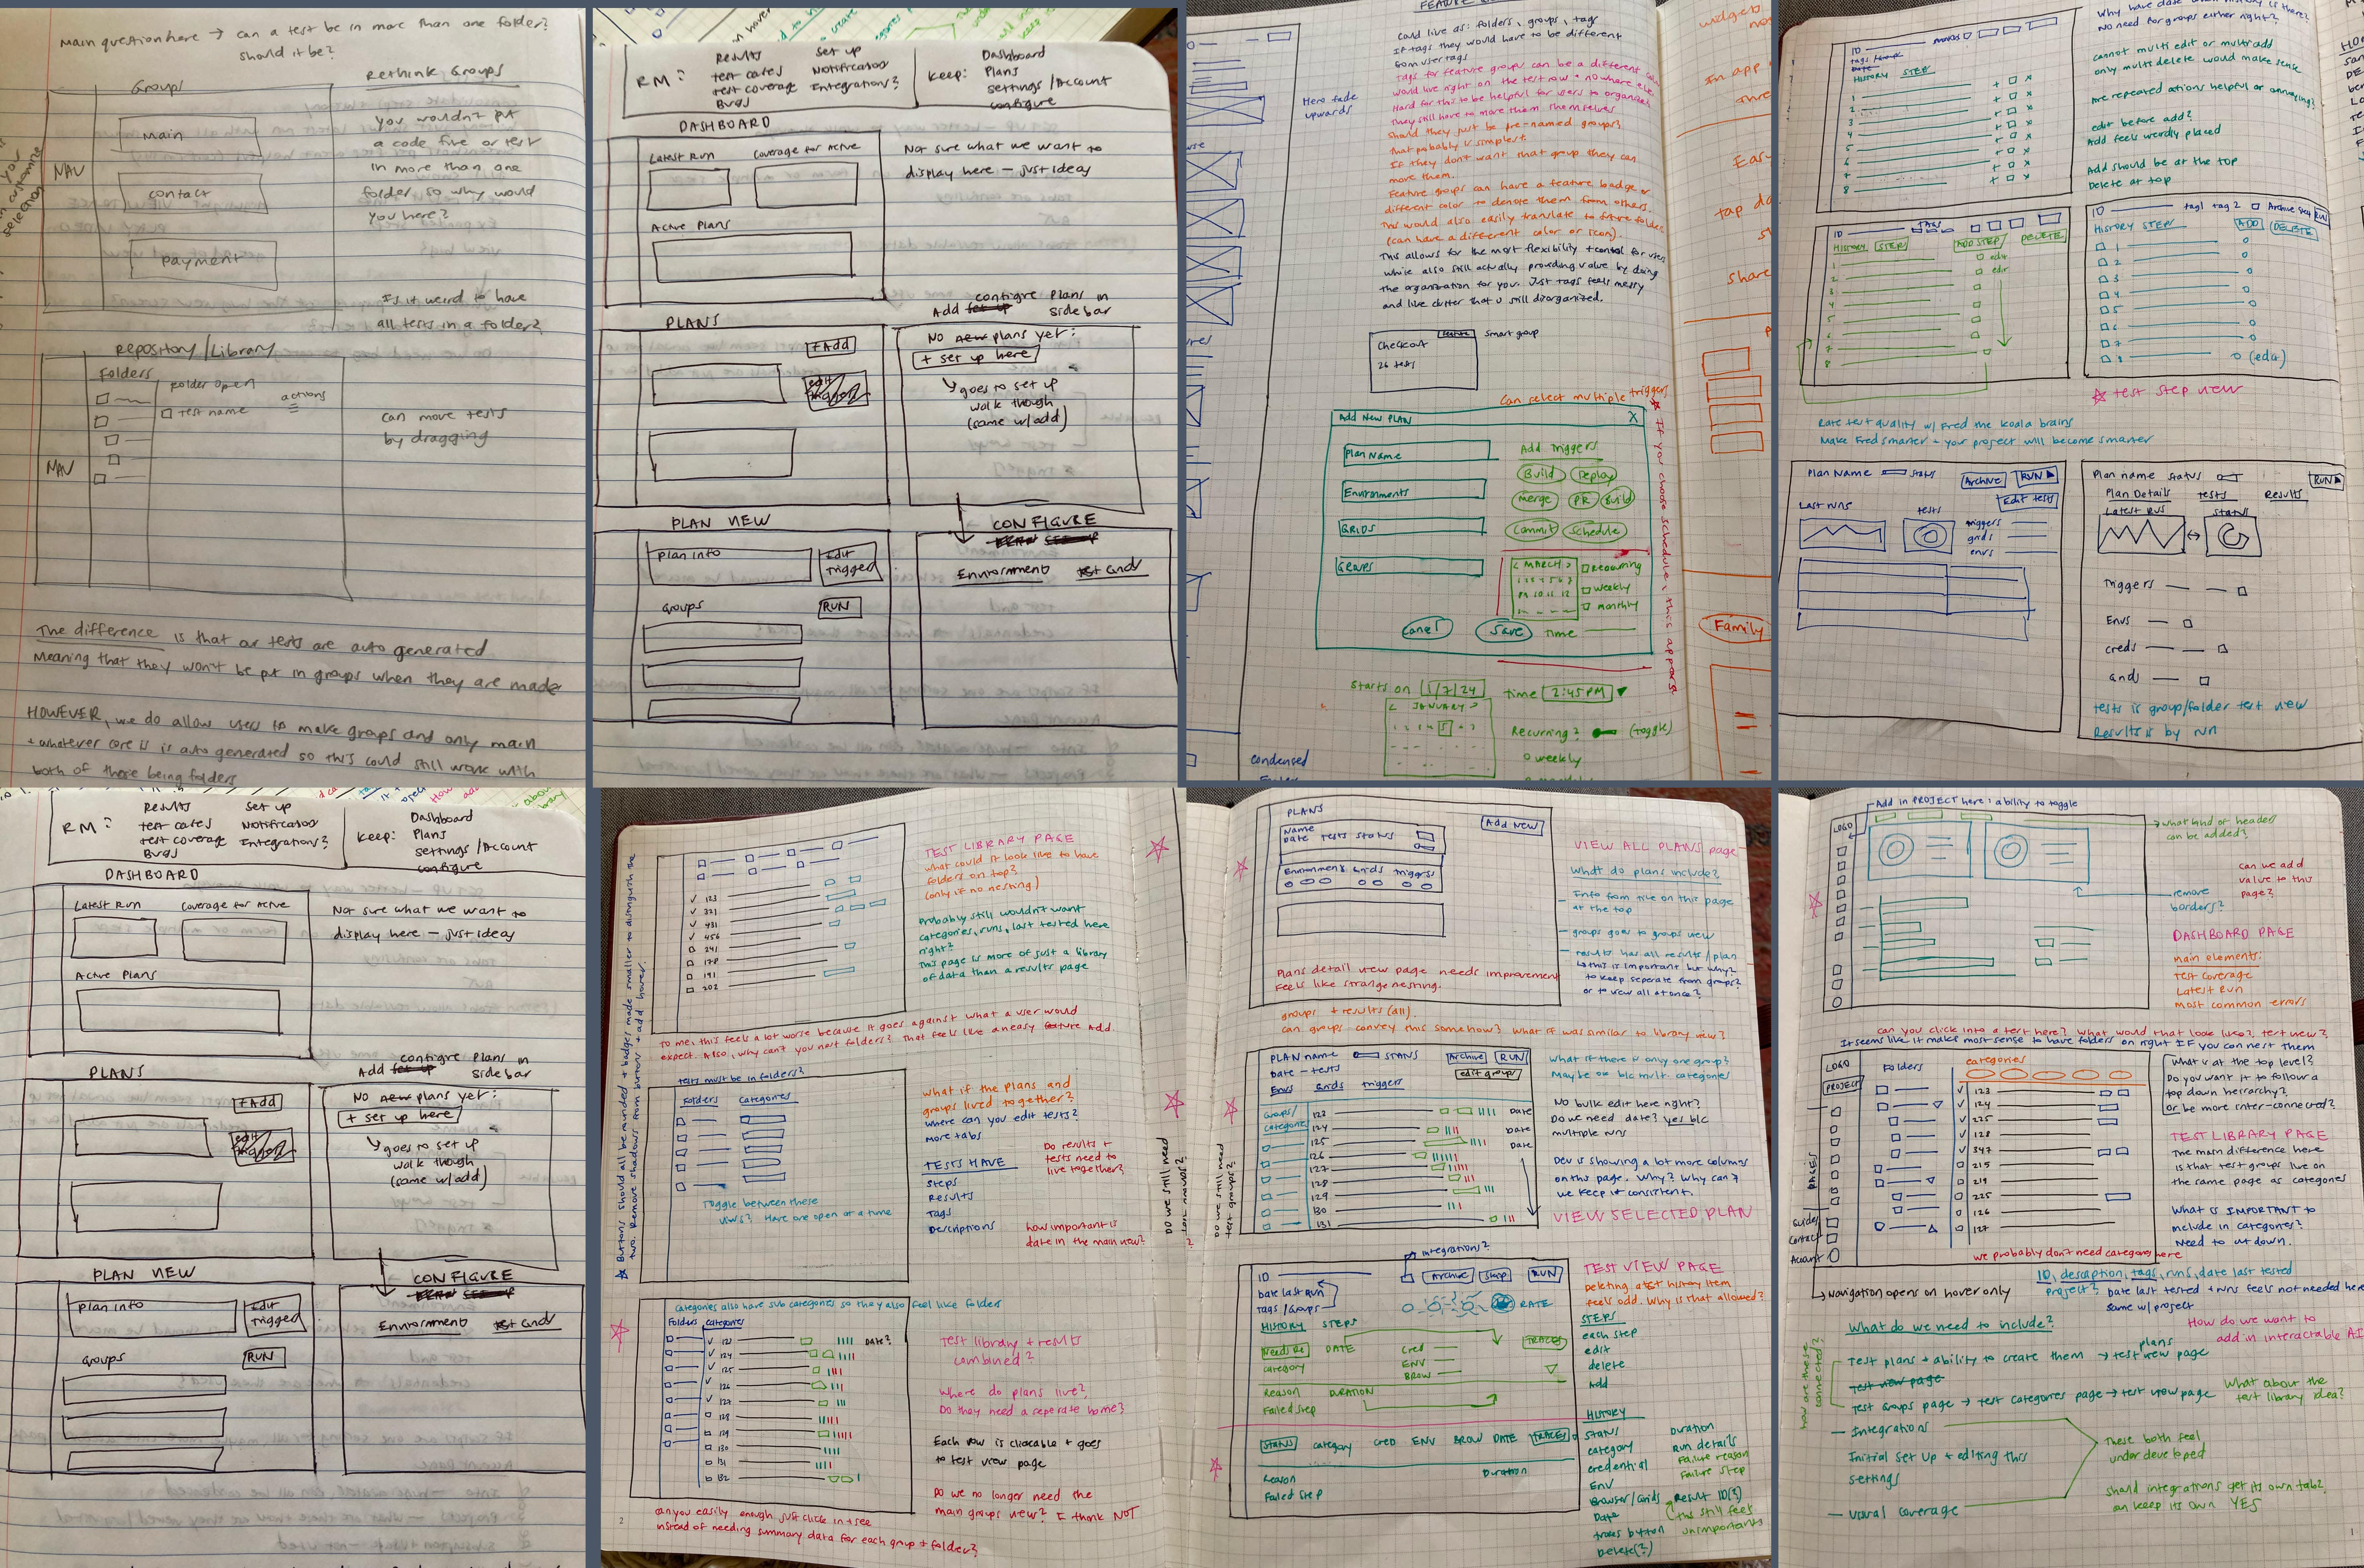 Main question here → can a test be in more than one folder?
should it be?
Groups
Main
contact
payment
NAV
Rethink Groups
you wouldn't put
a code file or test
in more than one
folder so why would
you here?
Is it weird to have
all tests in a folder?
Repository/Library
Folders
folder open
test name
actions
NAV
can move tests
by dragging
The difference is that our tests are auto generated
Meaning that they won't be put in groups when they are made
HOWEVER, we do allow users to make groups and only main
+ whatever core is is auto generated so this could still work with
both of those being folders
RM:
Results
test cases
test coverage
Bugs
Set up
Notifications
Integrations?
Keep:
Dashboard
Plans
settings/Account
configure
DASHBOARD
Latest Run
Coverage for Active
Active Plans
Not sure what we want to
display here — just ideas
PLANS
+Add
Add set up configure Plans in
side bar
No new plans yet:
+ set up here
goes to set up
walk though
(same w/add)
PLAN VIEW
plan info
Edit
Trigged
Groups
RUN
CONFIGURE
Environment
test Grids
Could live as: folders, groups, tags
If tags they would have to be different
from user tags
Tags for feature groups can be a different
would live right on the test row + nowhere else
Hard for this to be helpful for users to organize
They still have to move them themselves
Should they just be pre-named groups?
That probably is simplest
If they don't want that group they can
move them.
Feature groups can have a feature badge or
different color to denote them from others
This would also easily translate to future folders
(can have a different color or icon).
This allows for the most flexibility + control for users
while also still actually providing value by doing
the organization for you. Just tags feels messy
and like clutter that is still disorganized.
Hero fade
upwards
Checkout
26 tests
feature
Smart group
Can select multiple triggers
Add New PLAN
X
Plan Name
Environments
GRIDS
GROUPS
Add Triggers
Build
Deploy
Merge
PR
Build
Commit
Schedule
< MARCH >
Recurring
weekly
monthly
Cancel
Save
Time
If you choose schedule, this appears
Starts on 1/7/24 time 2:45 PM
< JANUARY >
Recurring? (toggle)
weekly
condensed
In app
Easy
tap
share
Family
ID
HISTORY STEP
1
2
3
4
5
6
7
8
Why have date when history is there?
No need for groups either right?
cannot multi edit or multi add
only multi delete would make sense
Are repeated actions helpful or annoying?
edit before add?
Add feels weirdly placed
Add should be at the top
Delete at top
ID
TAGS
HISTORY STEP
ADD STEP
DELETE
edit
edit
ID
tag1 tag 2
Archive
RUN
HISTORY STEP
ADD
DELETE
1
2
3
4
5
6
7
8
(edit)
☆ test step view
Rate test quality w/ Fred the koala brains
Make Fred smarter - your project will become smarter
Plan Name
Status
Archive
RUN
Edit tests
Last runs
tests
triggers
grids
envs
Plan name
status
RUN
Plan Details
tests
Results
Latest Runs
status
Triggers
Envs
creds
Grids
tests is group/folder test view
Results is by run
RM:
Results
test cases
test coverage
Bugs
Set up
Notifications
Integrations?
Keep:
Dashboard
Plans
settings/Account
configure
DASHBOARD
Latest Run
Coverage for Active
Active Plans
Not sure what we want to
display here — just ideas
PLANS
+Add
Add set up configure Plans in
side bar
No new plans yet:
+ set up here
goes to set up
walk though
(same w/add)
PLAN VIEW
plan info
Edit
Trigged
Groups
RUN
CONFIGURE
Environment
test Grids
123
321
431
456
241
178
191
202
TEST LIBRARY PAGE
What could it look like to have
folders on top?
(only if no nesting)
Probably still wouldn't want
categories, runs, last tested here
right?
This page is more of just a library
of data than a results page
To me, this feels a lot worse because it goes against what a user would
expect. Also, why can't you nest folders? That feels like an easy feature add.
☆ Buttons should all be rounded + badges made smaller to distinguish the
two. Remove shadows from buttons + add hover.
tests must be in folders?
Folders
Categories
Toggle between these
views? Have one open at a time
What if the plans and
groups lived together?
where can you edit tests?
more tabs
TESTS HAVE
Steps
Results
Tags
Descriptions
Do results +
tests need to
live together?
how important is
date in the main view?
Categories also have sub categories so they also feel like folders
Folders
Categories
123
124
125
126
127
128
129
130
131
132
Date?
Test library + results
combined?
Where do plans live?
Do they need a seperate home?
Each row is clickable + goes
to test view page
Do we no longer need the
main groups view? I think NOT
can you easily enough just click in + see
instead of needing summary data for each group + folder?
Do we still need
test groups?
PLANS
Add New
Name
Date Tests Status
Environments Grids Triggers
Plans detail view page needs improvement
Feels like strange nesting.
VIEW ALL PLANS page
What do plans include?
Info from tile on this page
at the top
groups goes to groups view
results has all results/plan
this is important but why?
to keep seperate from groups?
or to view all at once?
groups + results (all).
Can groups convey this somehow? What if was similar to library view?
PLAN name
STATUS
Archive
RUN
Date - tests
edit groups
Envs Grids triggers
Groups/
categories
123
124
125
126
127
128
129
130
131
Date
Date
Date
What if there is only one group?
Maybe ok b/c mult. categories
No bulk edit here right?
Do we need date? yes b/c
multiple runs
Dev is showing a lot more columns
on this page. Why? Why can't
we keep it consistent.
VIEW SELECTED PLAN
Do we still need
test groups?
integrations?
ID
Archive
Stop
RUN
Date last Run
Tags/Groups
RATE
HISTORY STEPS
DATE
category
Cred
ENV
BROW
TRACES
Reason DURATION
Failed Step
STATUS category CRED ENV BROW DATE TRACES
Reason
Failed Step
Duration
TEST VIEW PAGE
Deleting a test history item
feels odd. Why is that allowed?
STEPS
each step
edit
delete
Add
HISTORY
Status
category
credential
Env
Browser/Grids
Date
traces button
Delete(?)
Duration
Run details
Failure reason
Failure step
Result ID(?)
this still feels
unimportant
Add in PROJECT here: ability to toggle
LOGO
what kind of headers
can be added?
can we add
value to this
page?
remove
borders?
DASHBOARD PAGE
main elements:
Test coverage
Latest Run
Most common errors
Can you click into a test here? What would that look like?, test view?
It seems like it makes most sense to have folders on right IF you can nest them
LOGO
PROJECT
PAGES
Guides
Contact
Account
Folders
categories
123
124
225
128
347
215
219
225
126
127
What's at the top level?
Do you want it to follow a
top down heirarchy?
or be more inter-connected?
TEST LIBRARY PAGE
The main difference here
is that test groups live on
the same page as categories
What is IMPORTANT to
include in categories?
Need to cut down.
we probably don't need category here
Navigation opens on hover only
ID, description, tags, runs, date last tested
project? Date last tested + runs feels not needed here
Same w/ project
What do we need to include?
How do we want to
add in interactable AI
Test plans + ability to create them → test plans view page
Test view page
Test Groups page → test categories page → test view page
how are these
connected?
What about the
test library idea?
— Integrations
Initial Set Up + editing this
settings
— Visual Coverage
These both feel
under developed
Should integrations get its own tab?
can keep its own YES